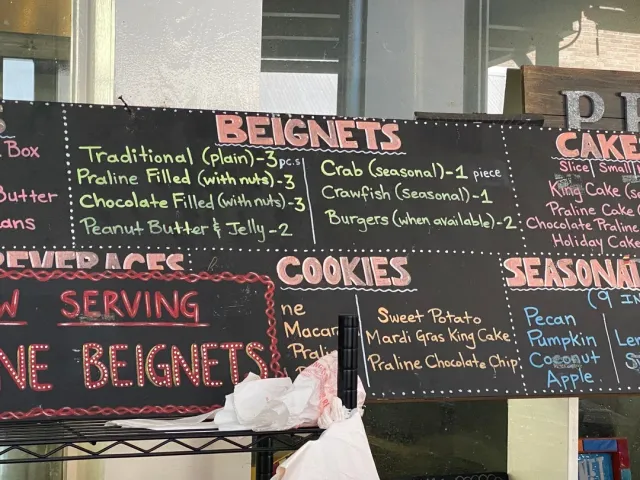 Box
Butter
BEIGNETS
Traditional (plain)-3 pc.s
Praline Filled (with nuts)-3
Chocolate Filled (with nuts)-3
Peanut Butter & Jelly-2
Crab (seasonal)-1 piece
Crawfish (seasonal)-1
Burgers (when available)-2
CAKE
Slice Small
King Cake
Praline Cake
Chocolate Praline
Holiday Cake
BEVERAGES
SERVING
BEIGNETS
COOKIES
Sweet Potato
Mardi Gras King Cake
Praline Chocolate Chip
SEASONA
(9 In
Pecan
Pumpkin
Coconut
Apple